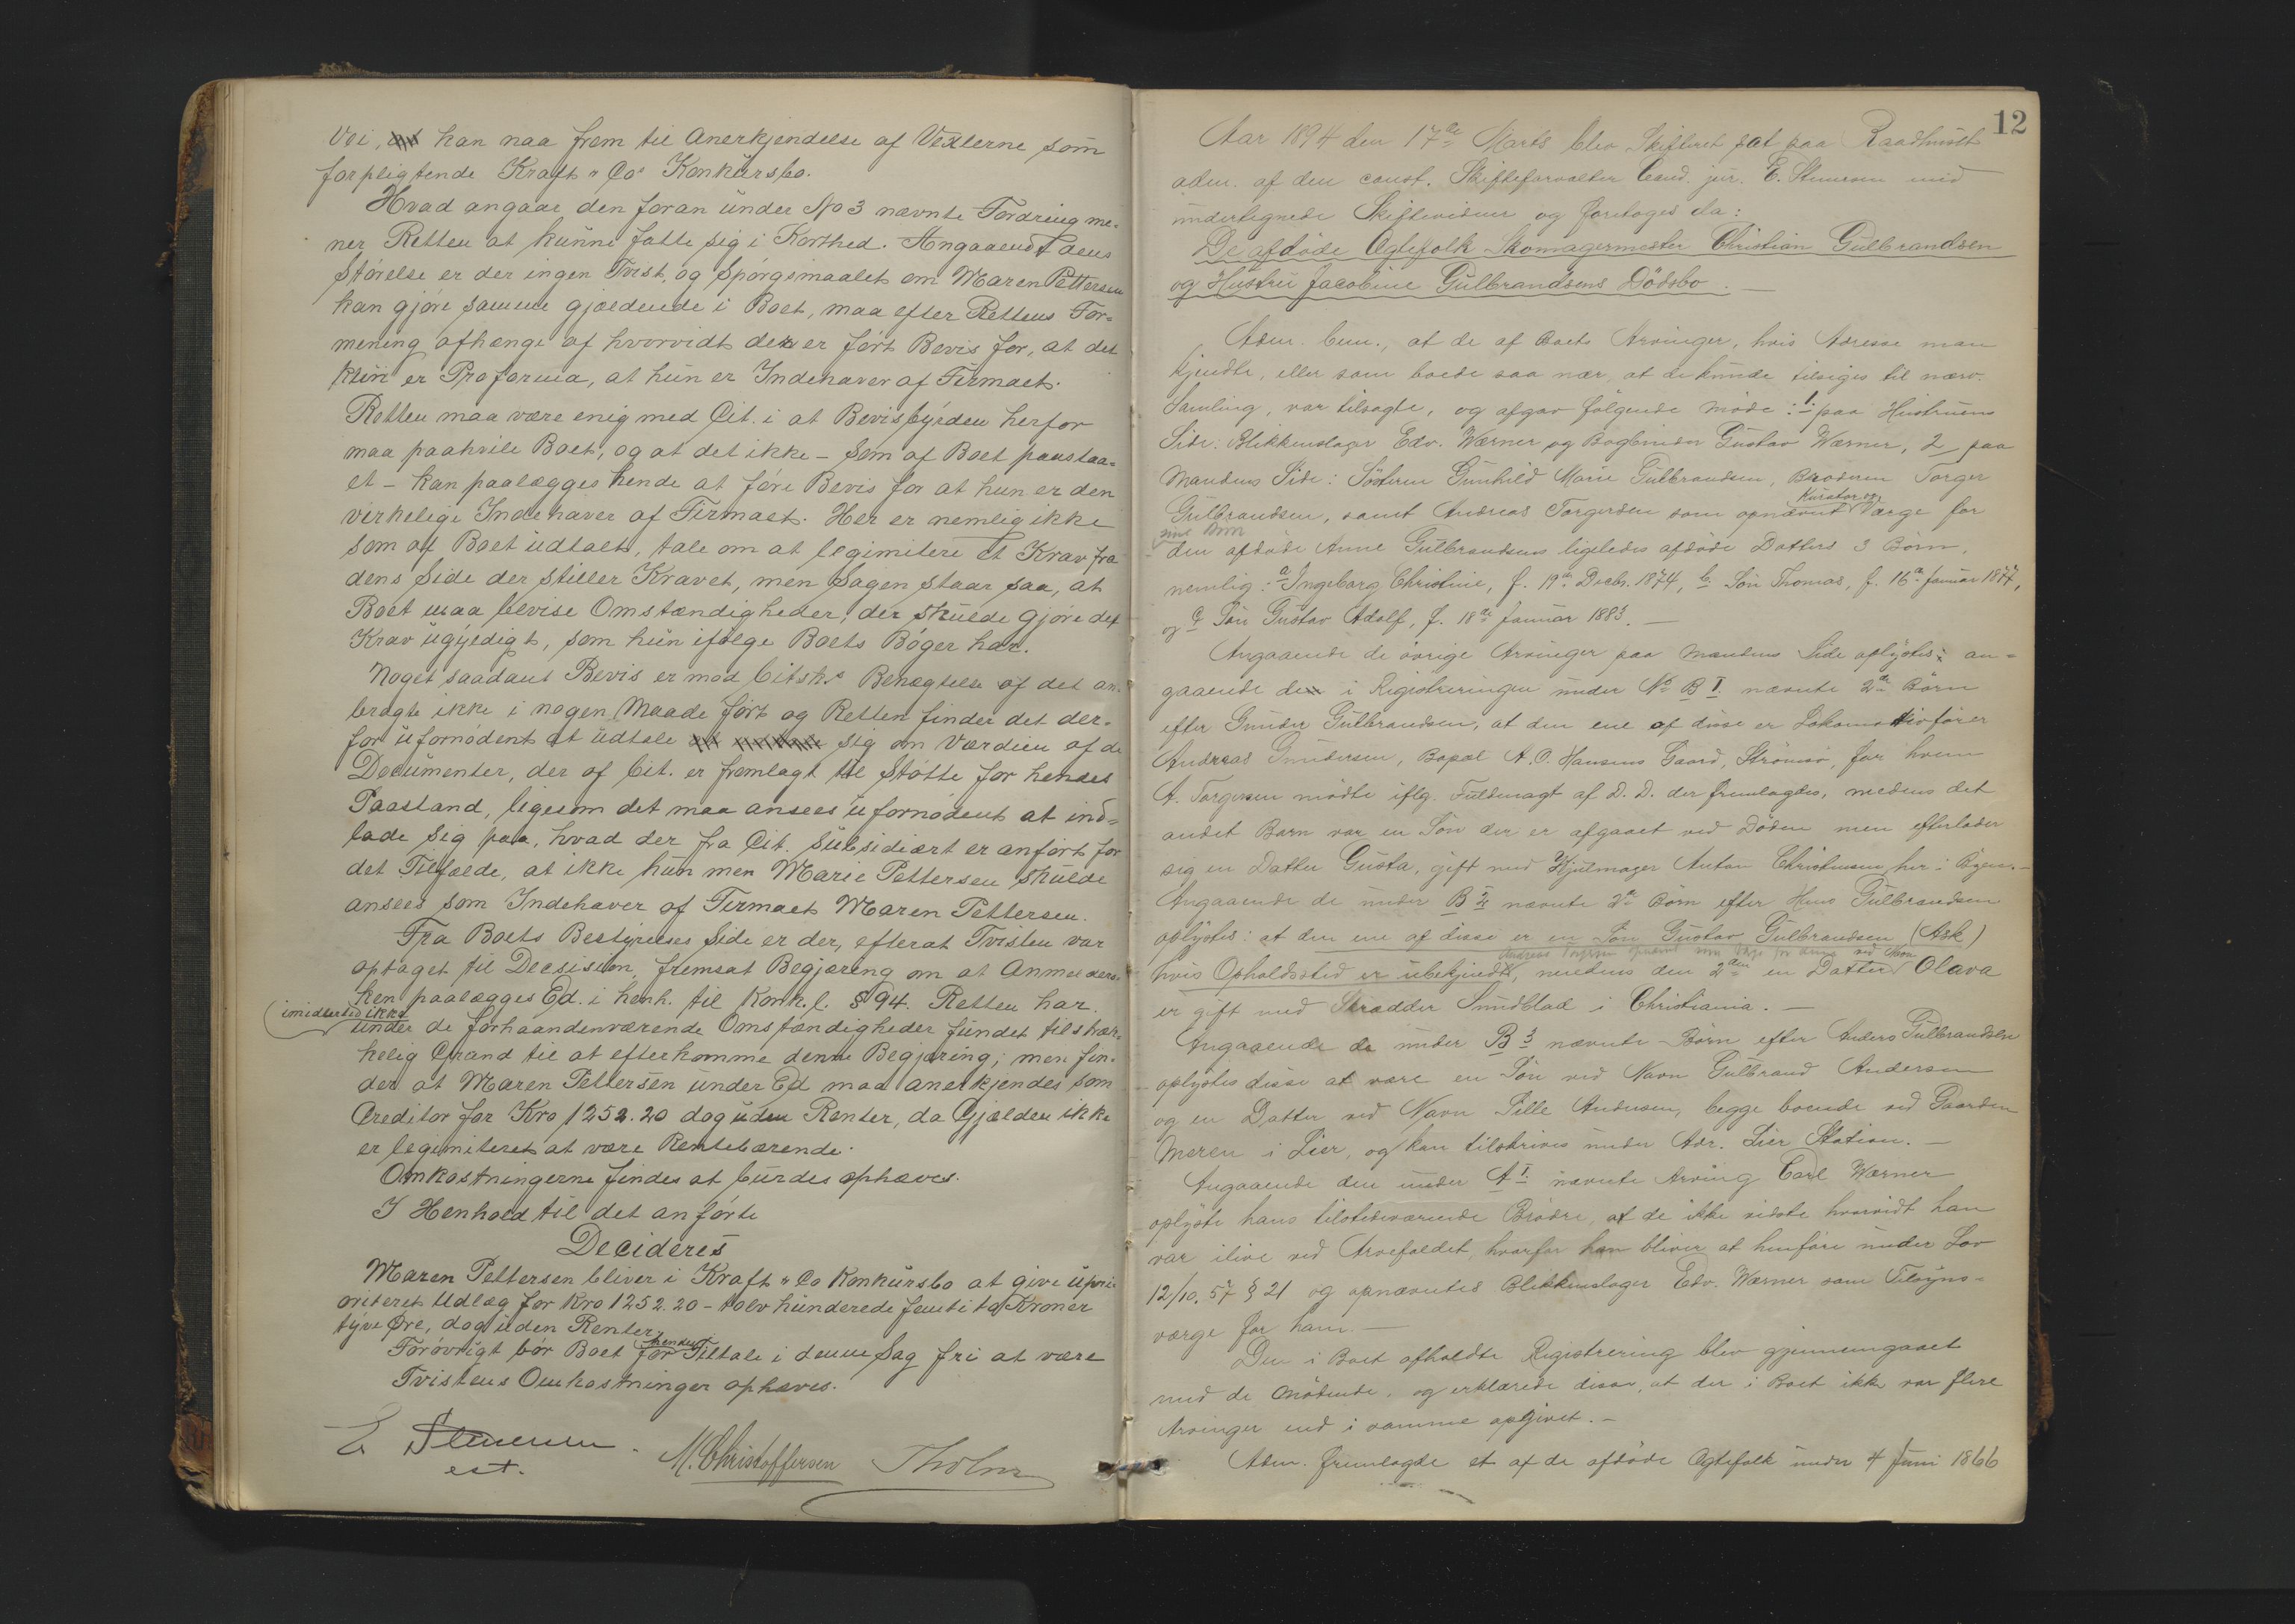 Vei, kan naa frem til Anerkjendelse af Vexlerne som
forpligtende Kraft & Cos Konkursbo.
Hvad angaar den foran under No 3 nævnte Fordring me-
ner Retten at kunne fatte sig i Korthed. Angaaendt dens
Störelse er der ingen Tvist, og Spörgsmaalet om Maren Pettersen
kan gjöre samme gjældende i Boet, maa efter Rettens For-
mening afhænge af hvorvidt der er fört Bevis for, at det
kun er Proforma, at hun er Indehaver af Firmaet.
Retten maa være enig med Cit. i at Bevisbyrden herfor
maa paahvile Boet, og at det ikke - som af Boet paastaa-
et - kan paalægges hende at före Bevis for at hun er den
virkelige Indehaver af Firmaet. Her er nemlig ikke
som af Boet udtalt, tale om at legimitere et Krav fra
dens Side der stiller Kravet, men Sagen staar saa, at
Boet maa bevise Omstændigheder, der skulde gjöre det
Krav ugyldigt, som hun ifölge Boets Böger har.
Noget saadant Bevis er mod Citsk.s Benægtelse af det an-
bragte ikke i nogen Maade fört og Retten finder det der-
for ufornödent at udtale sig om Værdien af de
Documenter, der af Cit. er fremlagt til Stötte for hendes
Paastand, ligesom det maa ansees ufornödent at ind-
lade sig paa, hvad der fra Cit. subsidiært er anfört for
det Tilfælde, at ikke hun men Marie Pettersen skulde
ansees som Indehaver af Firmaet Maren Pettersen.
Fra Boets Bestyrelses Side er der, efterat Tvisten var
optaget til Decision, fremsat Begjæring om at Anmelders-
ken paalægges Ed. i henh. til Konk.l. § 94. Retten har
imidlertid ikke
under de forhaandenværende Omstændigheder fundet tilstræk-
kelig Grund til at efterkomme denne Begjæring; men fin-
der at Maren Pettersen under Ed maa anerkjendes som
Creditor for Kro 1252.20 dog uden Renter, da Gjælden ikke
er legimiteret at være Rentebærende.
Omkostningerne findes at burdes ophæves.
I Henhold til det anförte
Decideres
Maren Pettersen bliver i Kraft & Co Konkursbo at give upri-
oriteret Udlæg for Kro 1252.20 - tolv hundrede femti to Kroner
tyve Øre, dog uden Renter.
Forövrigt bör Boet for hendes Tiltale i denne Sag fri at være
Tvistens Omkostninger ophæves.
E Stenersen.
cst.
M. Christoffersen
Tholm
12
Aar 1894 den 17de Marts blev Skifteret sat paa Raadhuset
adm. af den const. Skifteforvalter Cand. jur. E. Stenersen med
undertegnede Skiftevidner og foretoges da:
De afdöde Ægtefolk Skomagermester Christian Gulbrandsen
og Hustru Jacobine Gulbrandsens Dödsbo. —
Adm. bem., at de af Boets Arvinger, hvis Adresse man
kjendte, eller som boede saa nær at de kunde tilsiges til nærv.
Samling, var tilsagte, og afgav fölgende möde: 1. paa Hustruens
Side: Blikkenslager Edv. Wærner og Bogbinder Gustav Wærner, 2 paa
Mandens Side: Sösteren Gunhild Marie Gulbrandsen, Broderen Torger
Gulbrandsen, samt Andreas Torgersen som opnævnt Kurator og Værge for
sine Börn
den afdöde Anne Gulbrandsens ligeledes afdöde Datters 3 Börn,
nemlig: a Ingeborg Christine, f. 19de Decbr. 1874, b. Sön Thomas, f. 16de Januar 1877,
og c Sön Gustav Adolf, f. 18de Januar 1883. —
Angaaende de övrige Arvinger paa Mandens Side oplystes: an-
gaaende den i Registreringen under No B 1 nævnte 2de Börn
efter Gunder Gulbrandsen, at den ene af disse er Lokomotivförer
Andreas Gundersen, Bopæl A. O. Hansens Gaard, Strömsö, for hvem
A. Torgersen mödte iflg. Fuldmagt af D. D. der fremlagdes, medens det
andet Barn var en Sön der er afgaaet ved Döden men efterlader
sig en Datter Gusta, gift med Hjulmager Anton Christensen her i Byen. —
Angaaende de under B 2 nævnte 2de Börn efter Hans Gulbrandsen
oplystes: at den ene af disse er en Sön Gustav Gulbrandsen (Ask)
Andreas Torgersen opnævnt som Værge for denne ved Navn
hvis Opholdssted er ubekjendt, medens den 2den en Datter Olava
er gift med Skrædder Sundblad i Christiania. —
Angaaende de under B 3 nævnte Börn efter Anders Gulbrandsen
oplystes disse at være en Sön ved Navn Gulbrand Andersen
og en Datter ved Navn Pille Andersen, begge boende ved Gaarden
Meren i Lier, og kan tilskrives under Adr. Lier Station. —
Angaaende den under A 1 nævnte Arving Carl Wærner
oplyste hans tilstedeværende Brödre, at de ikke vidste hvorvidt han
var ilive ved Arvefaldet, hvorfor han bliver at henföre under Lov
12/10. 57 § 21 og opnævntes Blikkenslager Edv. Wærner som Tilsyns-
værge for ham. —
Den i Boet afholdte Registrering blev gjennemgaaet
med de Mödende, og erklærede disse, at der i Boet ikke var flere
Arvinger end i samme opgivet. —
Adm. fremlagde et af de afdöde Ægtefolk under 4 Juni 1866